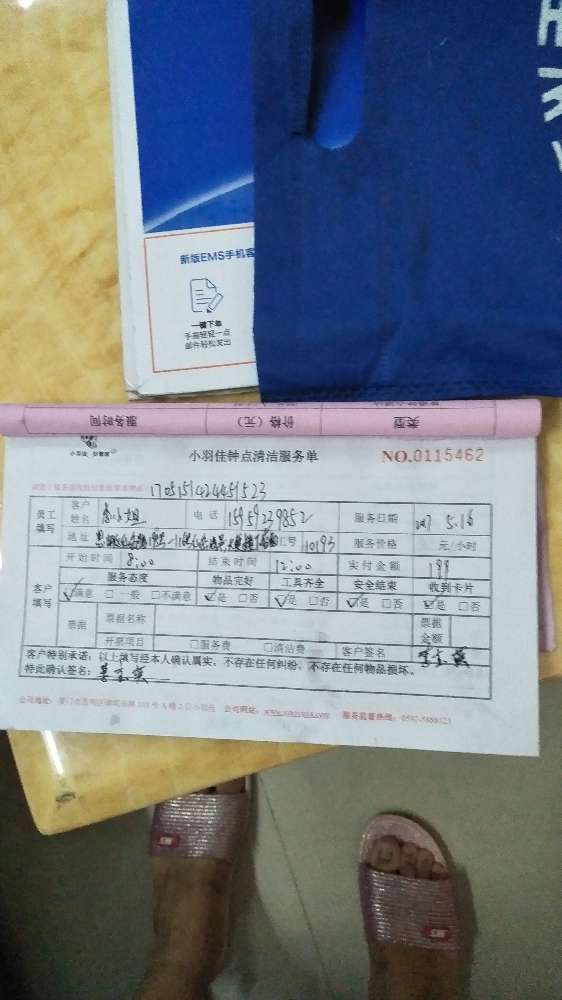 新版EMS手机客
一键下单
手指轻轻一点
邮件轻松发出
类型 价格（元） 服务时间
小羽佳钟点清洁服务单 NO.0115462
1705151424451523
员工填写 客户姓名 小姐 电话 15959239852 服务日期 2017 5.16
地址 工号 10193 服务价格 元/小时
客户填写 开始时间 8:00 结束时间 12:00 实付金额 199
服务态度 物品完好 工具齐全 安全结束 收到卡片
☑满意 □一般 □不满意 ☑是 □否 ☑是 □否 ☑是 □否 ☑是 □否
票据 票据名称 票据金额
开票项目 □服务费 □清洁费 客户签名
客户特别承诺：以上填写经本人确认属实，不存在任何纠纷，不存在任何物品损坏。
特此确认签名：
公司地址： 公司网站： 服务监督热线：